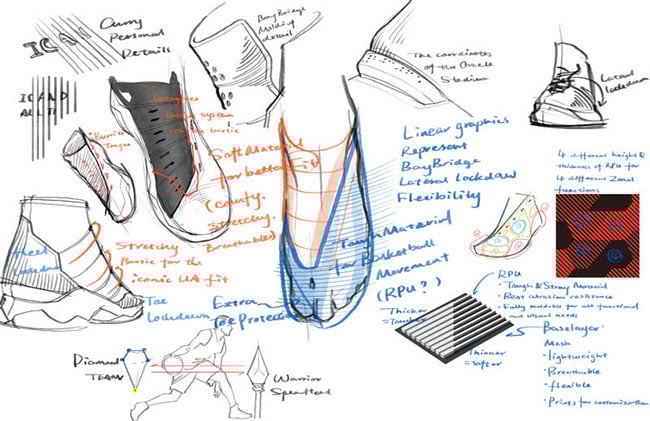 ICAN
Curry
Personal
Details
BayBridge
Molding
detail
The coordinates
of the Oracle
Stadium
Lateral
lockdown
ICAND
ALL
lacing system
into the bootie
Bootie
Tongue
Soft Material
for better fit
(comfy.
stretchy.
Breathable)
Linear graphics
Represent
BayBridge
Lateral Lockdow
Flexibility
4 different height &
thickness of RPU for
4 different Zonal
functions
Tough Material
for Basketball
Movement
(RPU?)
Heel
Lockdown
Stretchy
Bootie for the
iconic UA fit
Toe
Lockdown
Extra
Toe Protection
Thicker
=Tougher
Thinner
=Softer
RPU
• Tough & Strong Material
• Best abrasion resistance
• Fully moldable for all functional
and visual needs
Baselayer:
Mesh
• lightweight
• Breathable
• flexible
• Prints for customization
Diamond
TEAM
Warrior
Spearhead